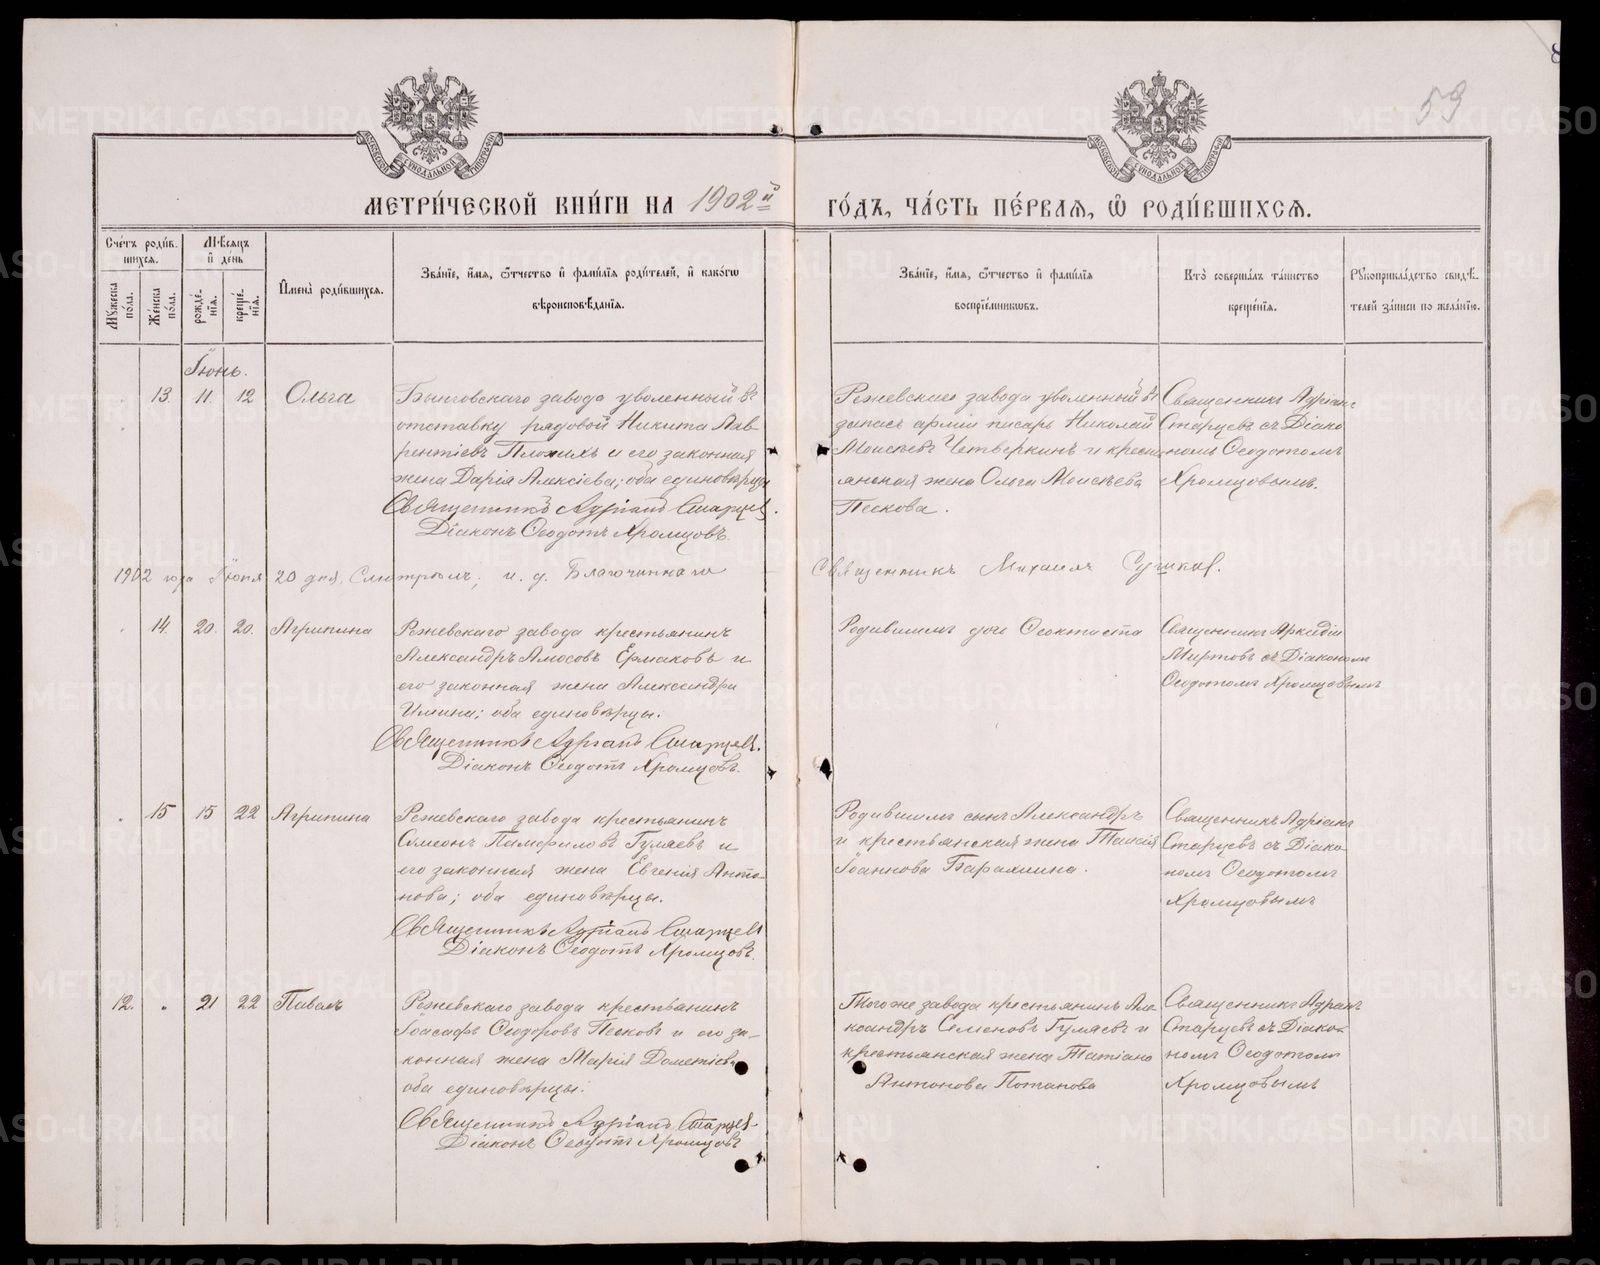 59
МЕТРИ́ЧЕСКОЙ КНИ́ГИ НА 1902й
ГО́ДЪ, ЧА́СТЬ ПЕ́РВАѦ, Ѽ РОДИ́ВШИХСѦ.
Сче́тъ роди́вшихсѧ.
Мꙋ́жеска по́ла.
Же́нска по́ла.
Мѣ́сѧцъ и҆ де́нь
рожде́нїѧ.
креще́нїѧ.
И҆мена̀ роди́вшихсѧ.
Зва́нїе, и҆́мѧ, ѻ҆́тчество и҆ фами́лїѧ роди́телей, и҆ како́гѡ
вѣроисповѣ́данїѧ.
Зва́нїе, и҆́мѧ, ѻ҆́тчество и҆ фами́лїѧ
воспрїе́мникѡвъ.
Кто̀ соверша́лъ та́инство
креще́нїѧ.
Рꙋкоприкла́дство свидѣ́телей за́писи по жела́нїю.
Іюнь.
13. 11. 12 Ольга
Бынговскаго завода уволенный въ
отставку рядовой Никита Лаврентіевъ Плохихъ и его законная
жена Дарія Алексіева; оба единовѣрцы
Священникъ Адріанъ Старцевъ.
Діаконъ Ѳеодотъ Хромцовъ.
Режевскаго завода уволенный въ
запасъ арміи писарь Николай
Моисеевъ Четверкинъ и крестьянская жена Ольга Моисѣева
Пескова.
Священникъ Адріанъ
Старцевъ съ Діакономъ Ѳеодотомъ
Хромцовымъ.
1902 года Іюня 20 дня, Смотрѣлъ, и. д. Благочиннаго
Священникъ Михаилъ Сушковъ.
14. 20. 20. Агрипина
Режевскаго завода крестьянинъ
Александръ Амосовъ Ермаковъ и
его законная жена Александра
Ильина; оба единовѣрцы.
Священникъ Адріанъ Старцевъ.
Діаконъ Ѳеодотъ Хромцовъ.
Родившимъ дочь Ѳеоктиста
Священникъ Аркадій
Миртовъ съ Діакономъ
Ѳеодотомъ Хромцовымъ
15 15 22 Агрипина
Режевскаго завода крестьянинъ
Симеонъ Памфиловъ Гуляевъ и
его законная жена Евгенія Антонова; оба единовѣрцы.
Священникъ Адріанъ Старцевъ
Діаконъ Ѳеодотъ Хромцовъ.
Родившимъ сынъ Александръ
и крестьянская жена Таисія
Іоаннова Барахнина.
Священникъ Адріанъ
Старцевъ съ Діакономъ Ѳеодотомъ
Хромцовымъ
12. 21 22 Павелъ
Режевскаго завода крестьянинъ
Іоасафъ Ѳеодоровъ Песковъ и его законная жена Марія Дометіева
оба единовѣрцы.
Священникъ Адріанъ Старцевъ
Діаконъ Ѳеодотъ Хромцовъ
Того же завода крестьянинъ Александръ Семеновъ Гуляевъ и
крестьянская жена Татіана
Антонова Потапова
Священникъ Адріанъ
Старцевъ съ Діакономъ Ѳеодотомъ
Хромцовымъ
METRIKI.GASO-URAL.RU